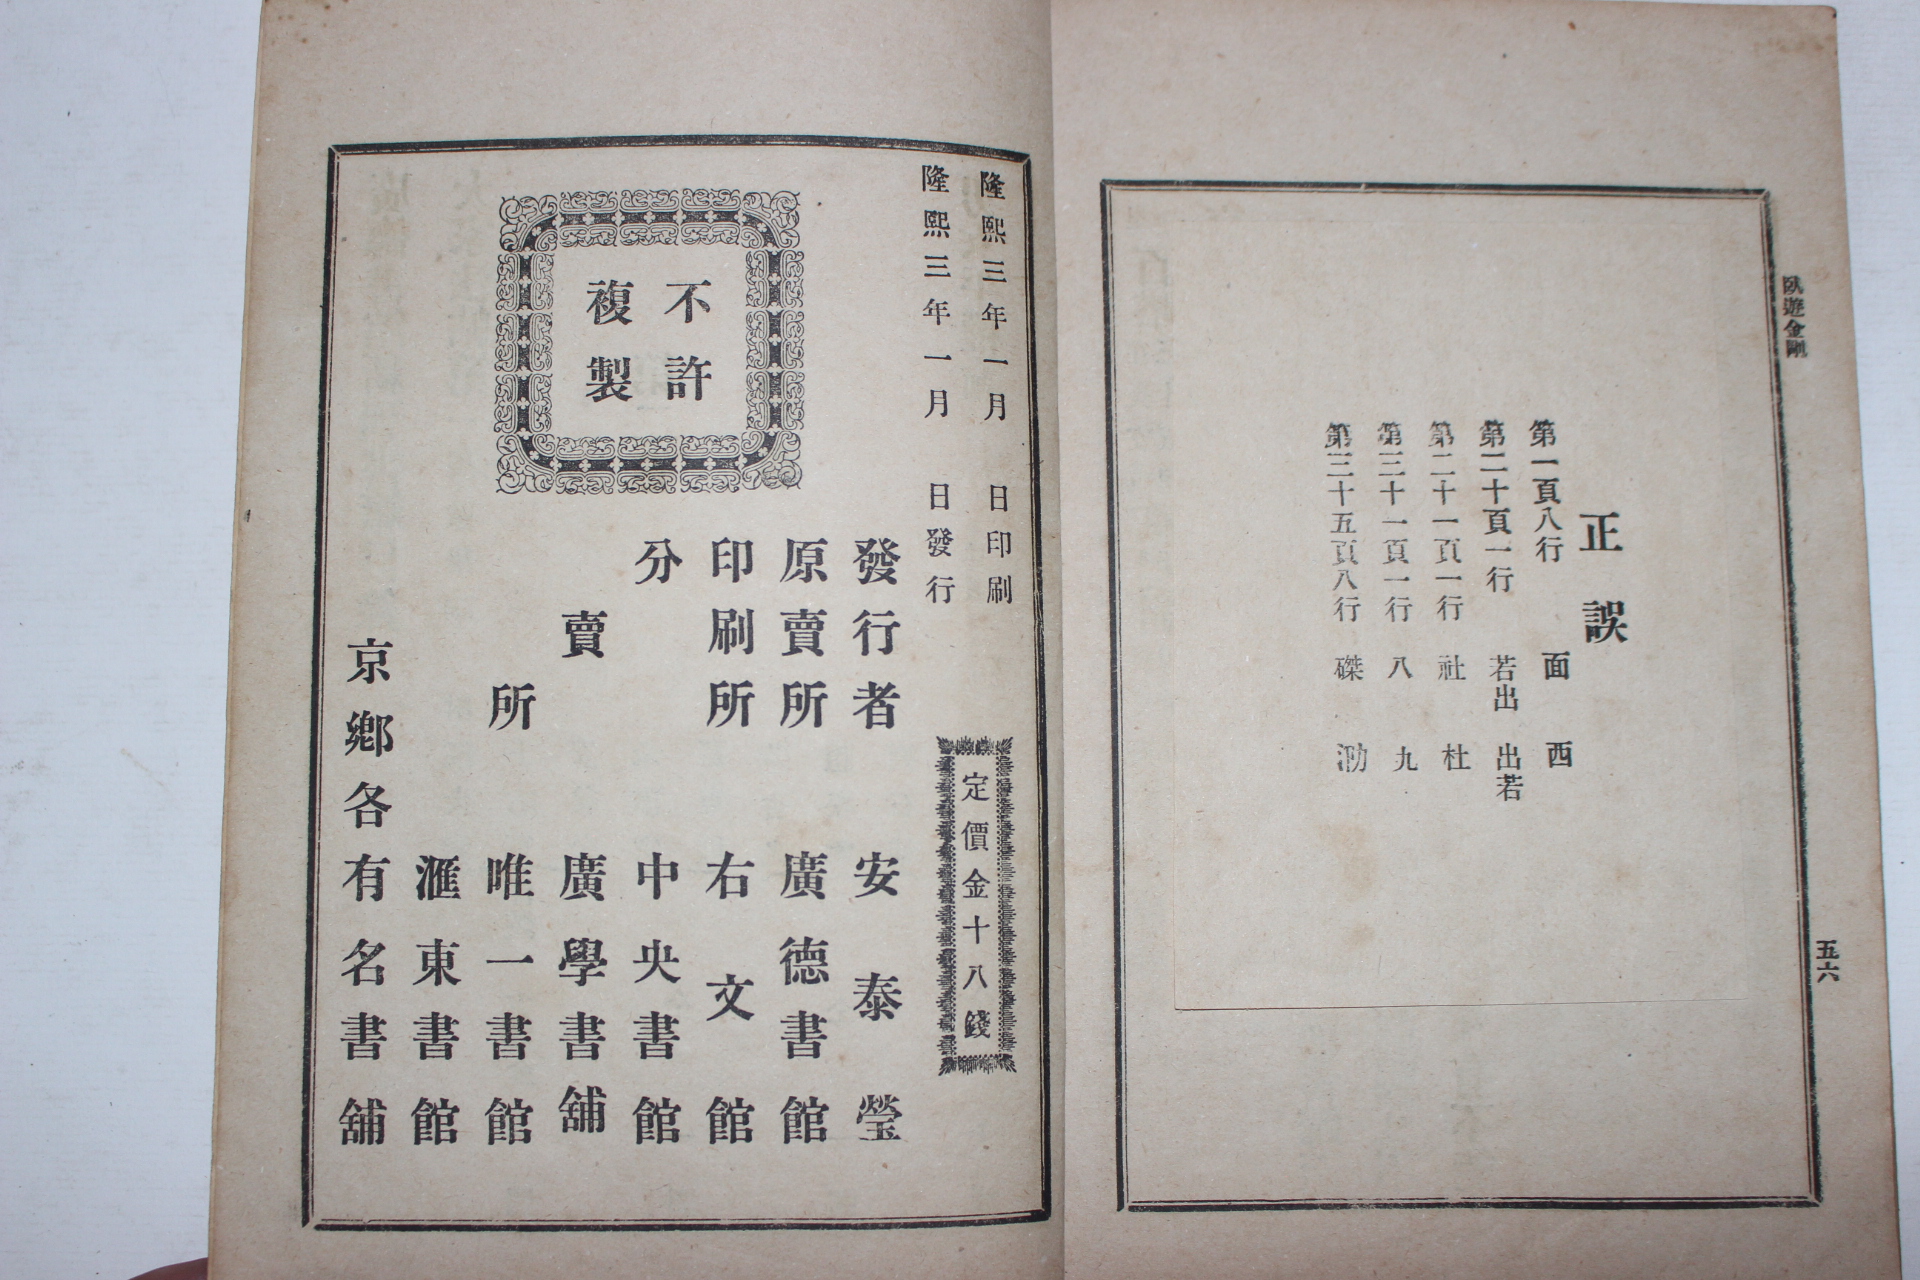 臥遊金剛
五六
正誤
第一頁八行 面 西
第二十頁一行 若出 出若
第二十一頁一行 社 杜
第三十一頁一行 八 九
第三十五頁八行 磔 泐
隆熙三年一月 日印刷
隆熙三年一月 日發行
定價金十八錢
不許
複製
發行者 安泰瑩
原賣所 廣德書館
印刷所 右文館
分賣所
中央書館
廣學書舖
唯一書館
滙東書館
京鄉各有名書舖